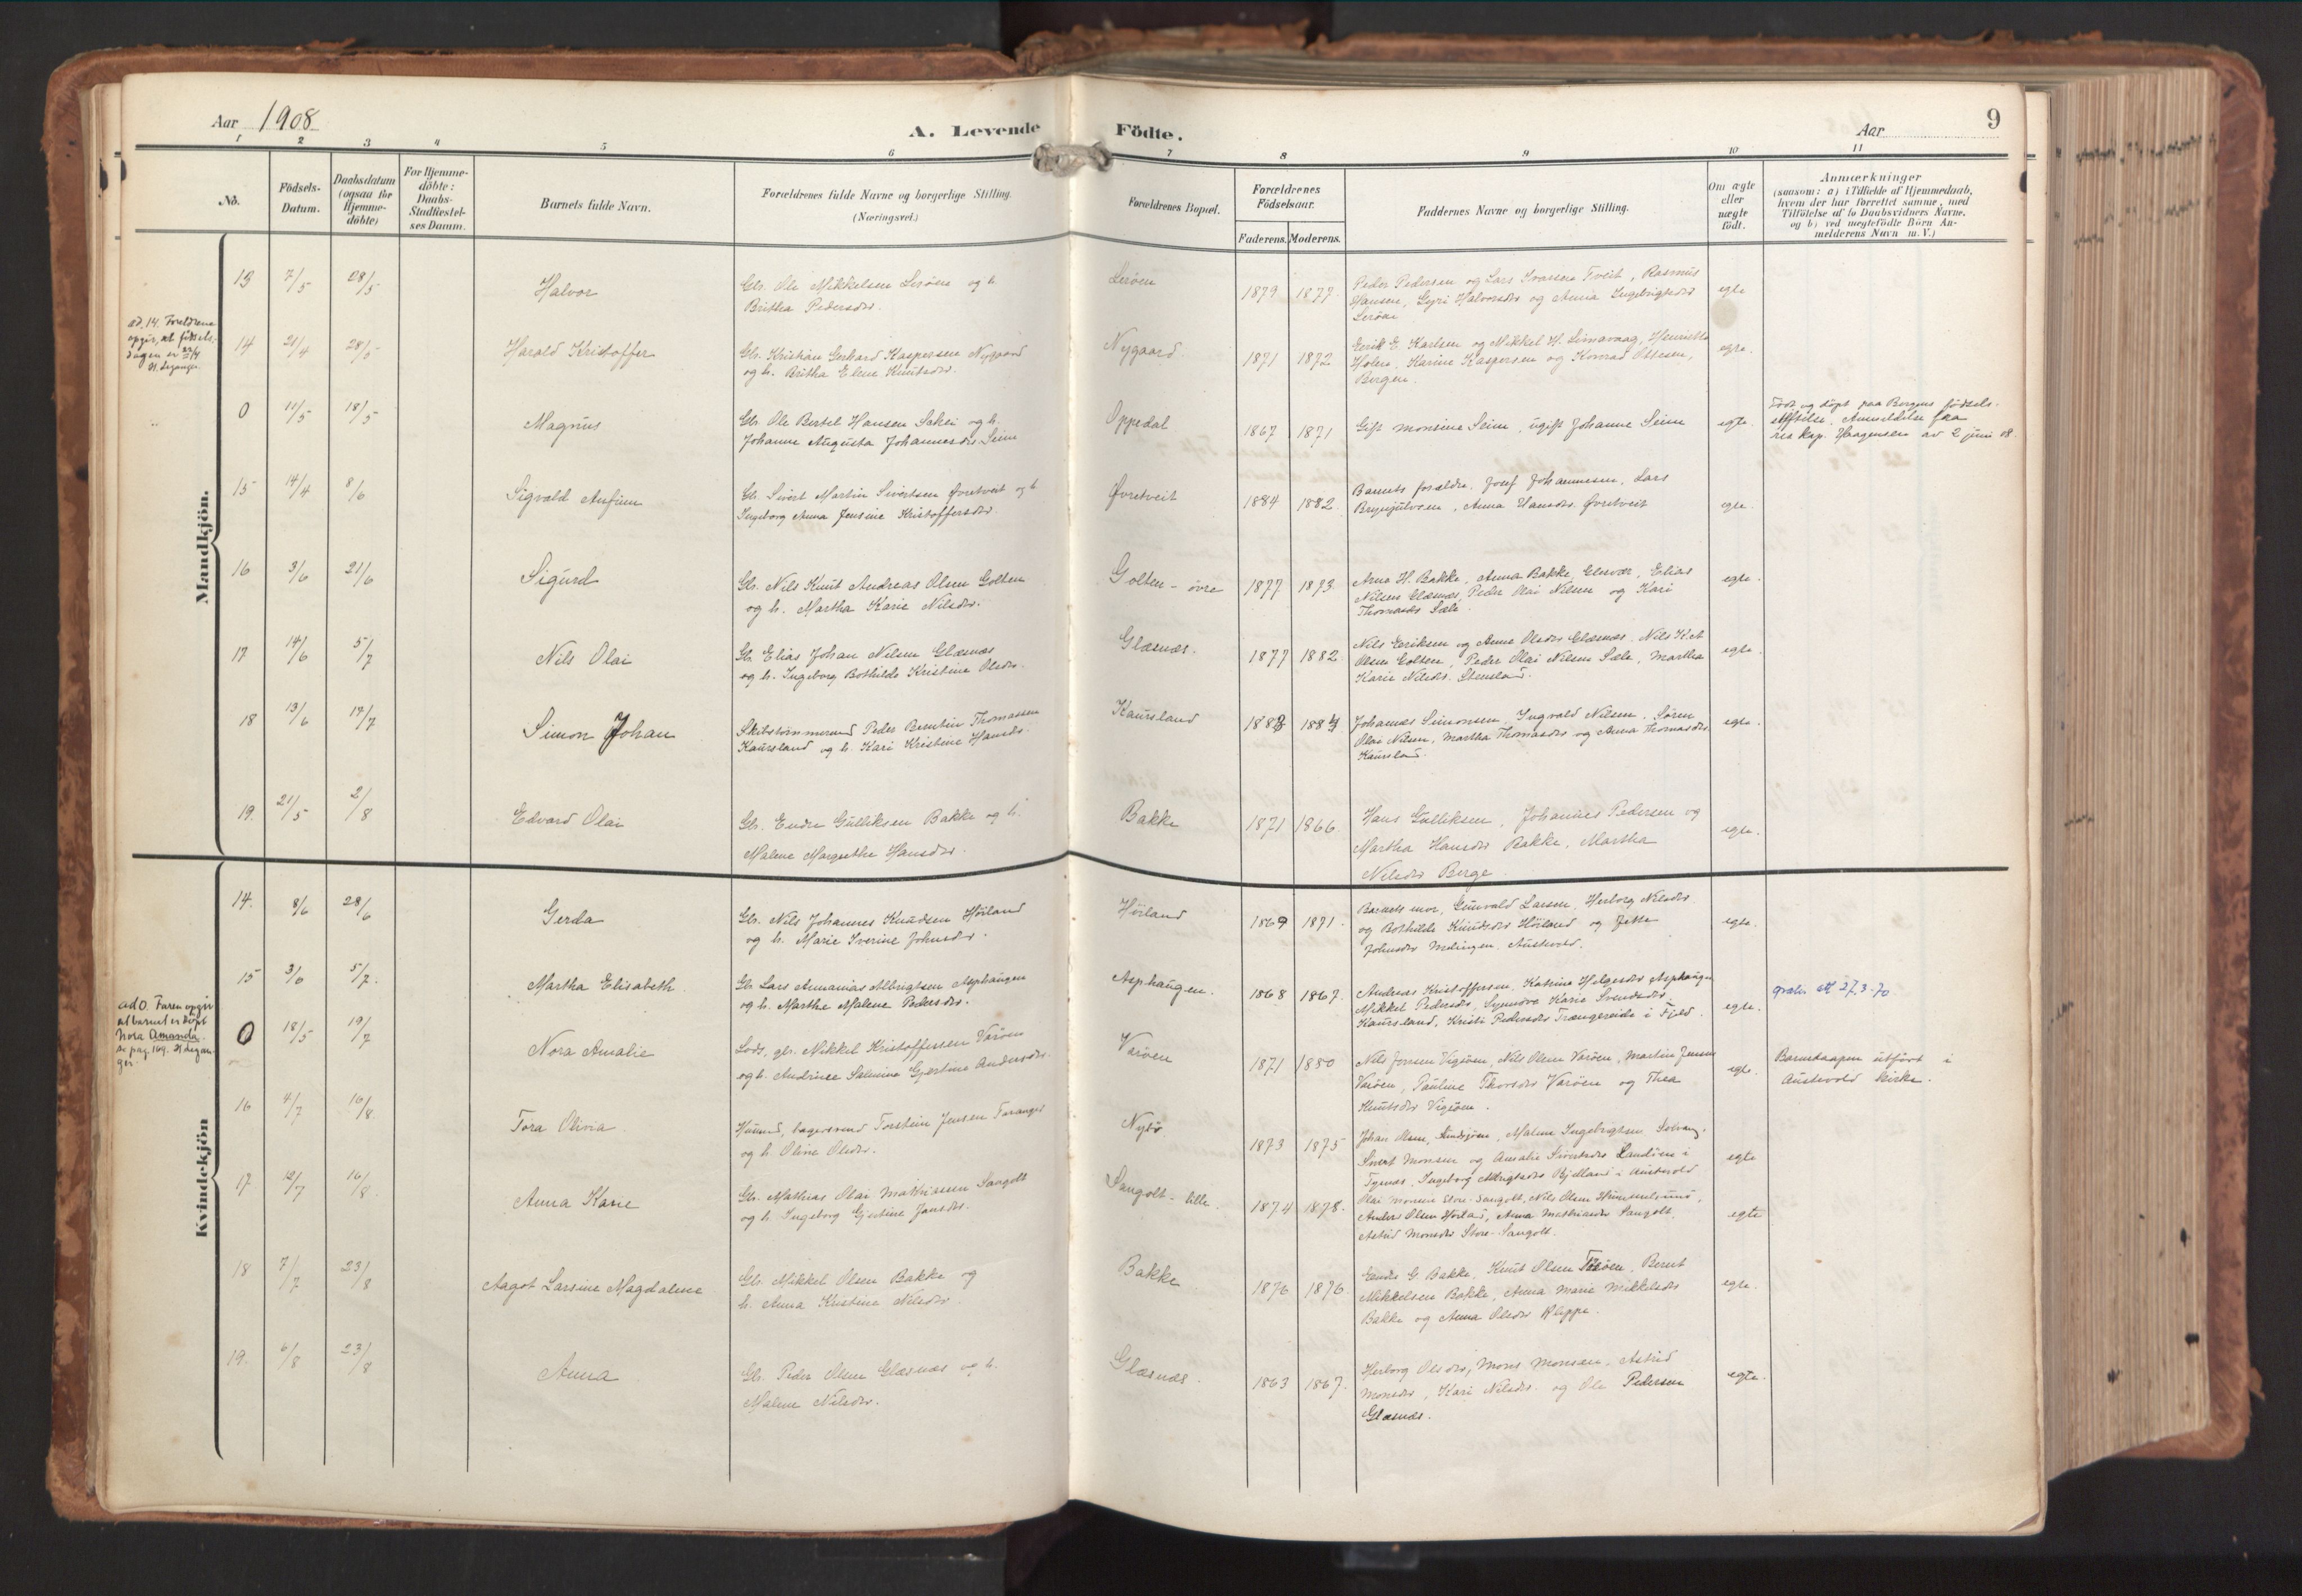 Aar 1908
A. Levende Födte.
Aar
9
1 2 3 4 5 6 7 8 9 10 11
No.
Födsels-Datum.
Daabsdatum (ogsaa for Hjemme-döbte)
For Hjemme-döbte: Daabs-Stadfæstel-ses Datum.
Barnets fulde Navn.
Forældrenes fulde Navne og borgerlige Stilling. (Næringsvei.)
Forældrenes Bopæl.
Forældrenes Födselsaar.
Faderens. Moderens.
Faddernes Navne og borgerlige Stilling.
Om ægte eller uægte födt.
Anmærkninger
(saasom: a) i Tilfælde af Hjemmedaab,
hvem der har forrettet samme, med
Tilföielse af to Daabsvidners Navne.
og b) ved uægtefödte Börn An-
melderens Navn m. V.)
Mandkjön.
13 7/5 28/5 Halvor
Gbr. Ole Mikkelsen Leröen og h.
Britha Pedersdtr.
Leröen 1879 1877
Peder Pedersen og Lars Ivarsen Tveit, Rasmus
Hansen, Gyri Halvorsdtr og Anna Ingebrigtsdtr
Leröen
egte
ad. 14. Foreldrene
opgir, at födsels-
dagen er 22/4
14 21/4 28/5 Harald Kristoffer
Gbr. Kristian Gerhard Kaspersen Nygaard
og h. Britha Elene Knutsdtr.
Nygaard 1871 1872
Eirik E. Karlsen og Mikkel H. Limavaag, Henrietta
Holen, Karine Kaspersen og Konrad Ottesen,
Bergen.
egte.
0 11/5 18/5 Magnus
Gbr. Ole Bertel Hansen Schei og h.
Johanne Augusta Johannesdtr. Seim
Oppedal 1867 1871
Gift Monsine Seim, ugift Johanne Seim
egte.
Födt og döpt paa Bergens födsels-
stiftelse. Anmeldelse fra
res kap. Haagensen av 2 juni 08.
15 14/4 8/6 Sigvald Anfinn
Gbr. Sivert Martin Sivertsen Øvretveit og h
Ingeborg Anna Jensine Kristoffersdtr.
Øvretveit 1884 1882
Barnets forældre, Josef Johannesen, Lars
Brynjulvsen, Anna Hansdtr. Øvretveit
egte.
16 3/6 21/6 Sigurd
Gbr. Nils Knut Andreas Olsen Golten
og h. Martha Karie Nilsdtr.
Golten - övre 1877 1873
Arne H. Bakke, Anna Bakke, Glesvær, Elias
Nilsen Glæsnæs, Peder Olai Nilsen og Kari
Thomasdtr Sæle.
egte.
17 14/6 5/7 Nils Olai
Gbr. Elias Johan Nilsen Glæsnæs
og h. Ingeborg Bothilde Kristine Olsdtr.
Glæsnæs. 1877 1882.
Nils Eeriksen og Anne Olsdtr Glæsnæs. Nils K. A
Olsen Golten, Peder Olai Nilsen Sæle, Martha
Karie Nilsdtr. Stensland.
egte.
18 13/6 19/7 Simon Johan
Skibstömmermand Peder Berntin Thomassen
Kaursland og h. Kari Kristine Hansdtr.
Kaursland 1883 1884
Johannes Simonsen, Ingvald Nilsen, Sören
Olai Nilsen, Martha Thomasdtr og Anna Thomasdtr
Kaursland.
egte.
19. 21/5 2/8 Edvard Olai
Gbr. Endre Gulliksen Bakke og h.
Malene Margrethe Hansdtr.
Bakke 1871 1866.
Hans Gulliksen, Johannes Pedersen og
Martha Hansdtr Bakke, Martha
Nilsdtr Berge
egte.
Kvindekjön
14. 8/6 28/6 Gerda
Gbr. Nils Johannes Knudsen Hörland
og h. Marie Iverine Johnsdtr.
Hörland 1869 1871.
Barnets mor, Gunvald Larsen, Herborg Nilsdtr.
og Bothilde Knudsdtr Hörland og Jette
Johnsdtr Melingen. Austevold.
egte.
15 3/6 5/7. Martha Elisabeth
Gbr Lars Annanias Albrigtsen Asphaugen
og h. Marthe Malene Pedersdtr.
Asphaugen. 1868 1867.
Andreas Kristoffersen, Katrine Helgesdtr Asphaugen
Mikkel Pedersen, Synnöva Karie Svendsdtr
Kaursland, Kristi Pedersdtr Trængereide i Fjeld.
egte.
27.3.70
ad 0. Faren opgir
at barnet er döpt
Nora Amanda.
Se pag. 169.
0 18/5 19/7 Nora Amalie
Lods, gbr. Mikkel Kristoffersen Varöen
og h. Andrine Salmine Gjertine Andersdtr.
Varöen 1871 1880
Nils Jensen Vigsöen, Nils Olsen Varöen, Martin Jensen
Varöen, Pauline Thorsdtr Varöen og Thea
Knutsdtr Vigsöen.
egte.
Barnedaapen utfört i
Austevold kirke.
16 4/7 16/8. Tora Olivia
Husmd, bagersvend Torstein Jensen Faranger
og h. Oline Olsdtr.
Nysö 1873 1875
Johan Olsen, Malene Ingebrigtsen Solvang,
Sivert Monsen og Amalie Sivertsdtr Landöen i
Tysnæs, Ingeborg Albrigtsdtr Bjelland i Austevold
egte
17 12/7 16/8. Anna Karie
Gbr. Mathias Olai Mathiasen Sangolt
og h. Ingeborg Gjertine Jansdtr.
Sangolt. lille. 1874 1878.
Olai Monsen Store-Sangolt, Nils Olsen Hummelsund,
Anders Olsen Hörland, Anna Mathiasdtr Sangolt,
Astrid Monsdtr Store-Sangolt.
egte
18 7/7 23/8 Aagot Larsine Magdalene
Gbr. Mikkel Olsen Bakke og
h. Anna Kristine Nilsdtr.
Bakke 1876 1876.
Endre G. Bakke, Knut Olsen Toröen, Bernt
Mikkelsen Bakke, Anna Marie Mikkelsdtr
Bakke og Anna Olsdtr Kleppe.
egte.
19. 6/8 23/8 Anna
Gbr. Peder Olsen Glæsnæs og h.
Malene Nilsdtr.
Glæsnæs. 1863 1867.
Herborg Olsdtr, Mons Monsen, Astrid
Monsdtr, Kari Nilsdtr. og Ole Pedersen
Glæsnæs.
egte.